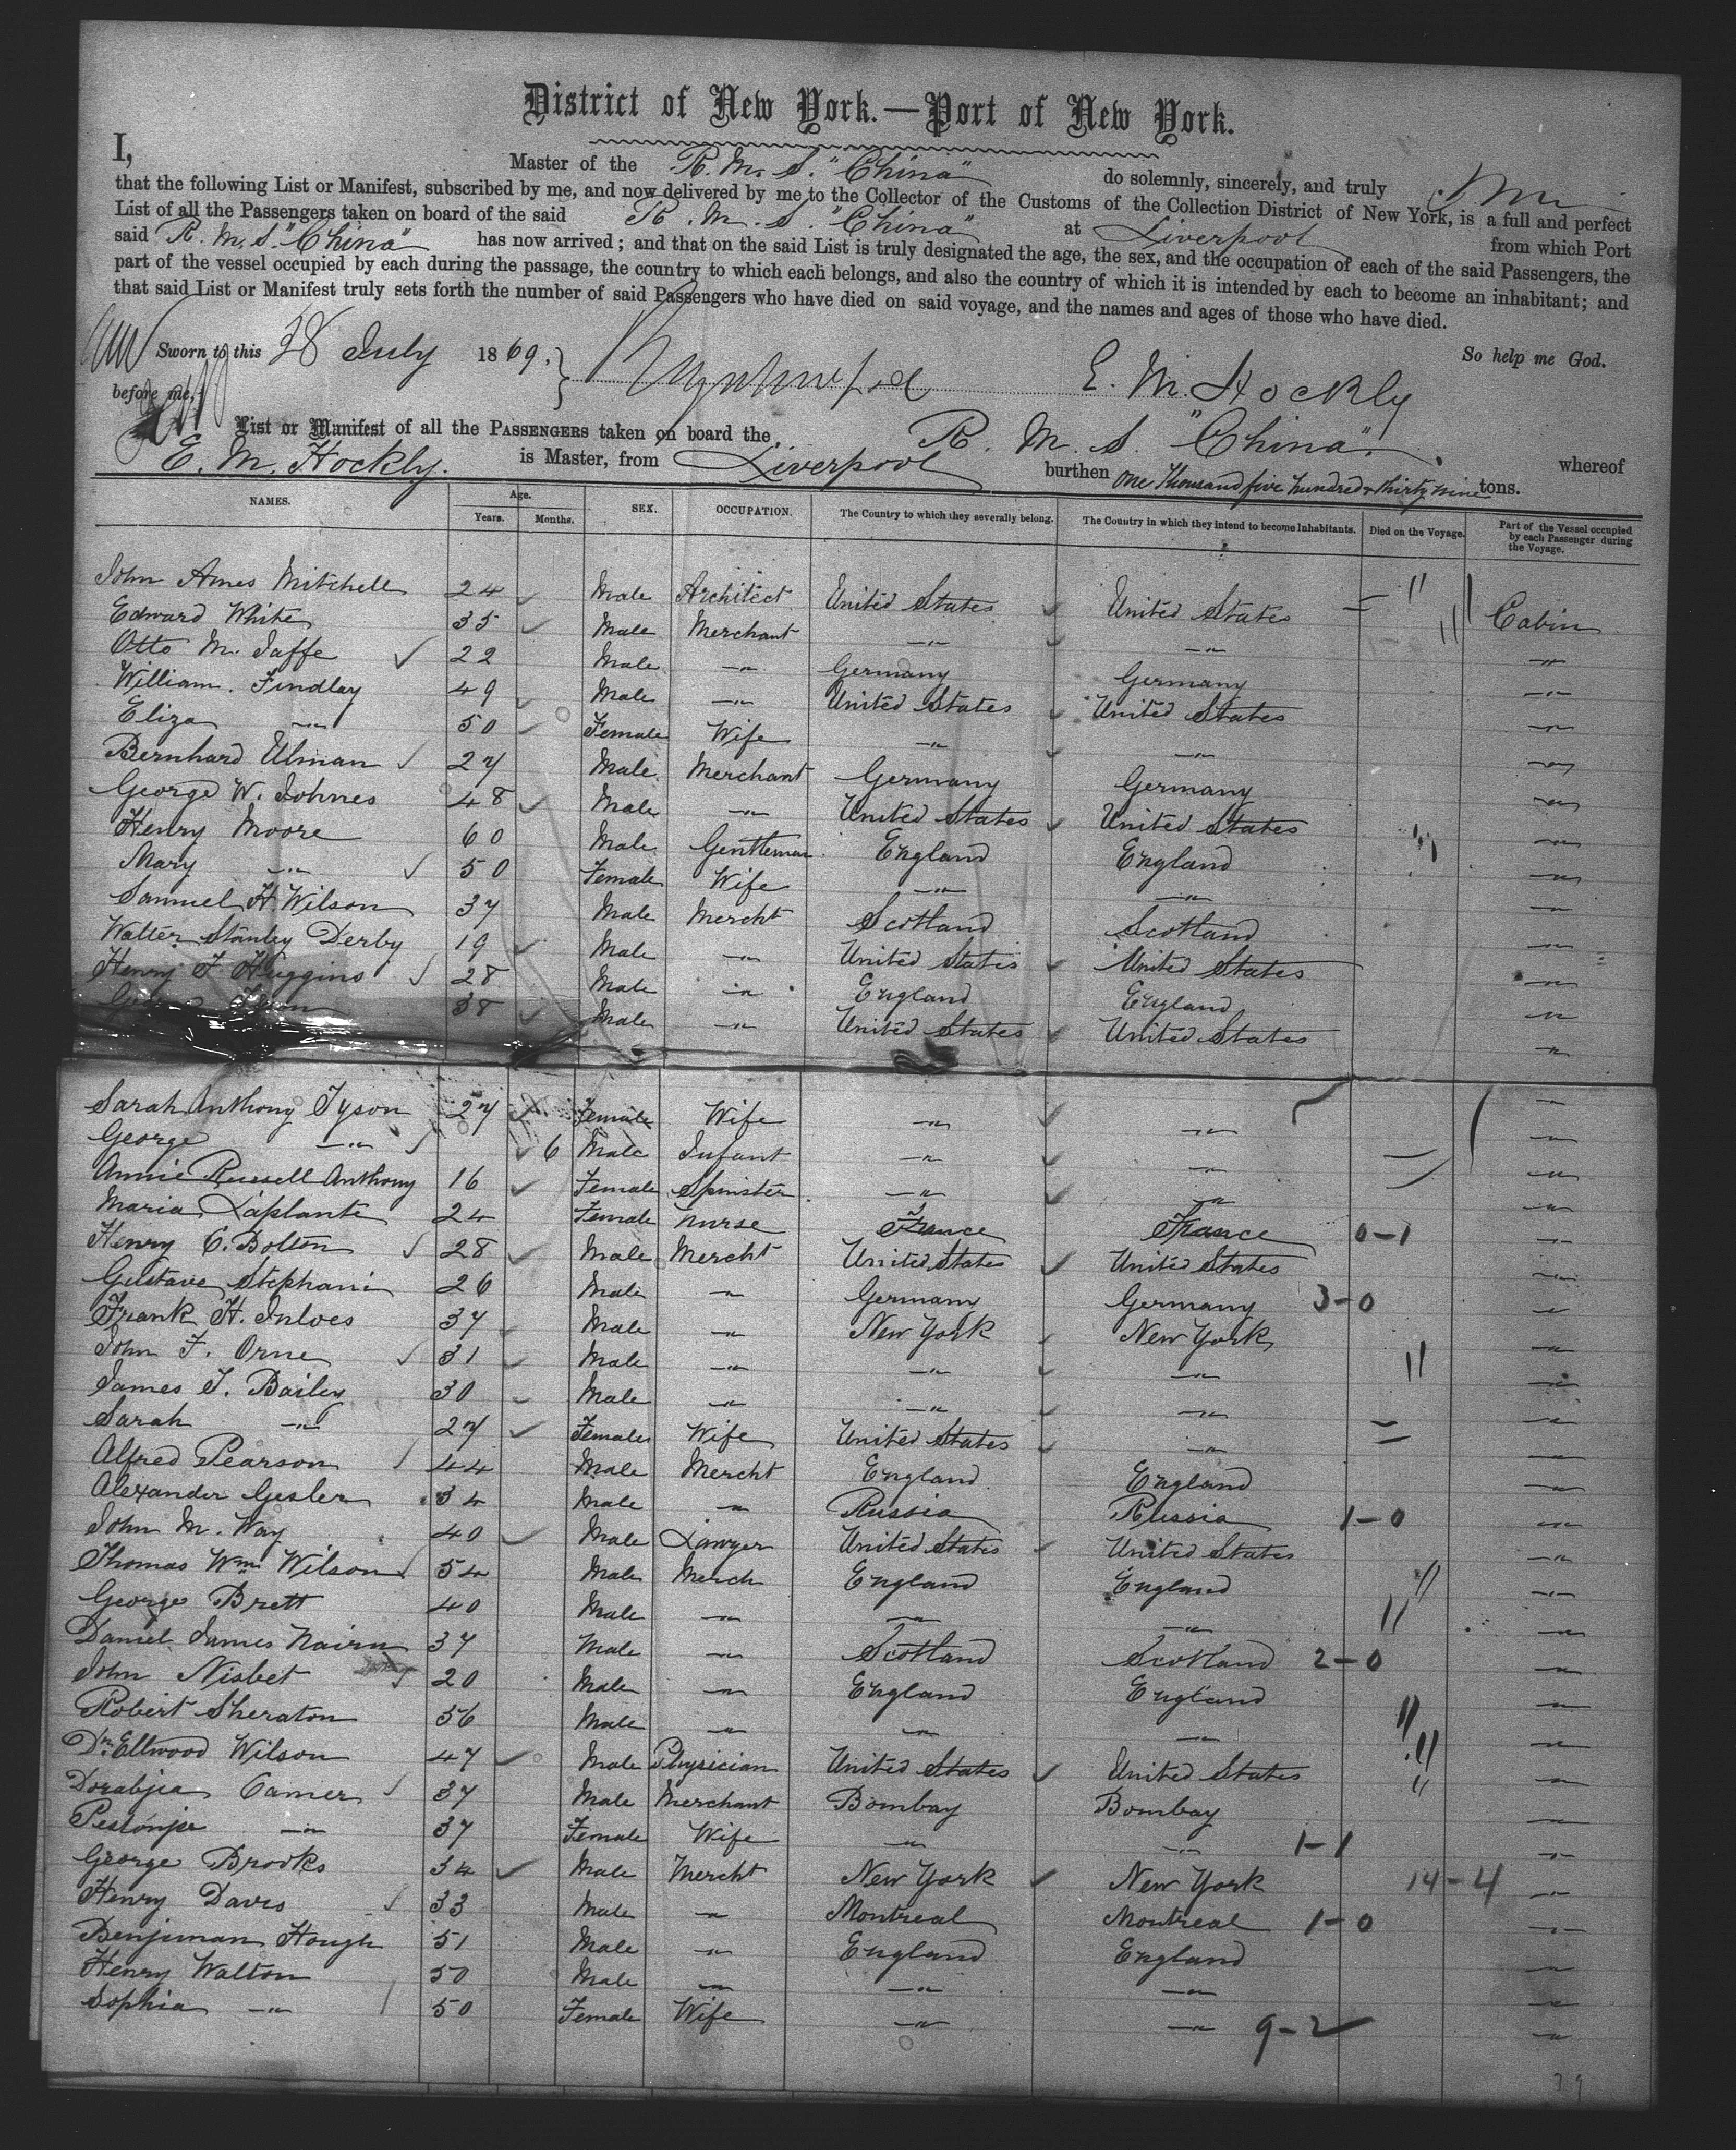 District of New York.—Port of New York.
I, Master of the R. M. S. "China" do solemnly, sincerely, and truly
that the following List or Manifest, subscribed by me, and now delivered by me to the Collector of the Customs of the Collection District of New York, is a full and perfect
List of all the Passengers taken on board of the said R. M. S. "China" at Liverpool from which Port
said R. M. S. "China" has now arrived; and that on the said List is truly designated the age, the sex, and the occupation of each of the said Passengers, the
part of the vessel occupied by each during the passage, the country to which each belongs, and also the country of which it is intended by each to become an inhabitant; and
that said List or Manifest truly sets forth the number of said Passengers who have died on said voyage, and the names and ages of those who have died.
So help me God.
Sworn to this 28 July 1869.
before me, E. M. Hockly
List or Manifest of all the PASSENGERS taken on board the R. M. S. "China" whereof
E. M. Hockly. is Master, from Liverpool burthen One Thousand five hundred & thirty nine tons.
NAMES. Age. Years. Months. SEX. OCCUPATION. The Country to which they severally belong. The Country in which they intend to become Inhabitants. Died on the Voyage. Part of the Vessel occupied by each Passenger during the Voyage.
John Ames Mitchell 24 Male Architect United States United States Cabin
Edward White 35 Male Merchant —"— —"— —"—
Otto M. Jaffe 22 Male —"— Germany Germany —"—
William. Findlay 49 Male —"— United States United States —"—
Eliza —"— 50 Female Wife —"— —"— —"—
Bernhard Ulman 27 Male Merchant Germany Germany —"—
George W. Johnes 48 Male —"— United States United States —"—
Henry Moore 60 Male Gentleman England England —"—
Mary —"— 50 Female Wife —"— —"— —"—
Samuel H. Wilson 37 Male Mercht Scotland Scotland —"—
Walter Stanley Derby 19 Male —"— United States United States —"—
Henry F Huggins 28 Male —"— England England —"—
38 Male —"— United States United States —"—
Sarah Anthony Tyson 27 Female Wife —"— —"— —"—
George —"— 6 Male Infant —"— —"— —"—
Annie Russell Anthony 16 Female Spinster —"— —"— —"—
Maria Laplante 24 Female Nurse France France 0-1 —"—
Henry C. Bolton 28 Male Mercht United States United States —"—
Gustave Stephani 26 Male —"— Germany Germany 3-0 —"—
Frank H. Inloes 37 Male —"— New York New York —"—
John F. Orne 31 Male —"— —"— —"— —"—
James T. Bailey 30 Male —"— —"— —"— —"—
Sarah —"— 27 Female Wife United States —"— —"—
Alfred Pearson 44 Male Mercht England England —"—
Alexander Gesler 34 Male —"— Russia Russia 1-0 —"—
John M. Way 40 Male Lawyer United States United States —"—
Thomas Wm. Wilson 54 Male Merch England England —"—
George Brett 40 Male —"— —"— —"— —"—
Daniel James Nairn 37 Male —"— Scotland Scotland 2-0 —"—
John Nisbet 20 Male —"— England England —"—
Robert Sheraton 56 Male —"— —"— —"— —"—
Dr. Ellwood Wilson 47 Male Physician United States United States —"—
Dorabjea Camer 37 Male Merchant Bombay Bombay —"—
Pestonje —"— 37 Female Wife —"— —"— 1-1 —"—
George Brooks 34 Male Mercht New York New York 14-4 —"—
Henry Davis 33 Male —"— Montreal Montreal 1-0 —"—
Benjiman Hough 51 Male —"— England England —"—
Henry Walton 50 Male —"— —"— —"— —"—
Sophia —"— 50 Female Wife —"— —"— 9-2 —"—
39